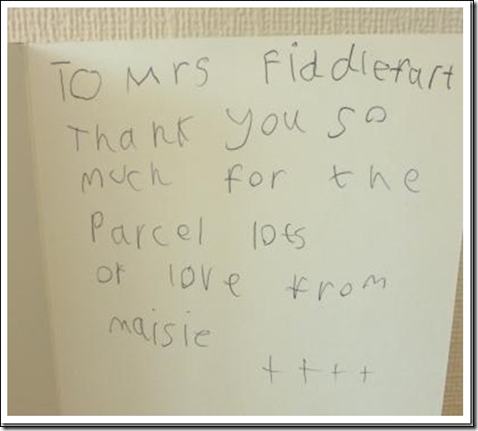 To Mrs Fiddlefart
Thank you so
much for the
Parcel lots
of love from
maisie
++++